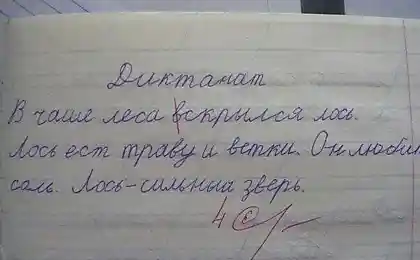 Диктанат
В чаще леса вскрылся лось.
Лось ест траву и ветки. Он любит
соль. Лось-сильный зверь.
4